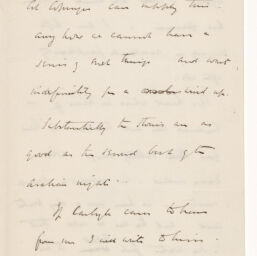 can supply this -
any how we cannot have a
series of such things and wait
indefinitely for a wind up.
Substantially the stories are as
good as the second best of the
Arabian nights.
If Carlyle cares to hear
from me I will write to him.